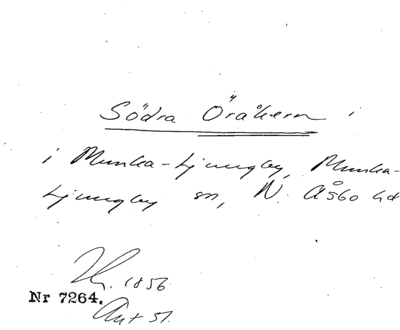 Södra Öråkern i
i Munka-Ljungby, Munka-
Ljungby sn, N. Åsbo hd
1856
Nr 7264.
Akt 51.